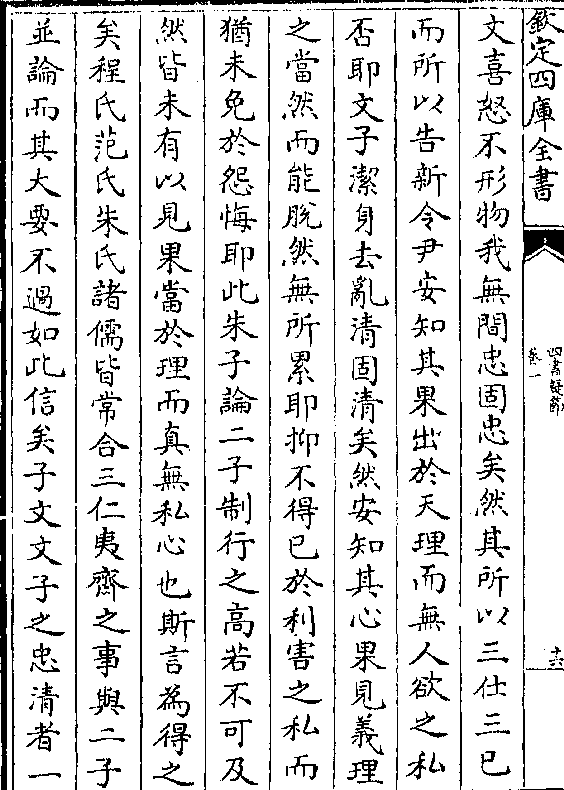 欽定四庫全書
四書疑節
卷一
十六
文喜怒不形物我無間忠固忠矣然其所以三仕三已
而所以告新令尹安知其果出於天理而無人欲之私
否耶文子潔身去亂清固清矣然安知其心果見義理
之當然而能脫然無所累耶抑不得已於利害之私而
猶未免於怨悔耶此朱子論二子制行之高若不可及
然皆未有以見果當於理而真無私心也斯言為得之
矣程氏范氏朱氏諸儒皆常合三仁夷齊之事與二子
並論而其大要不過如此信矣子文文子之忠清者一